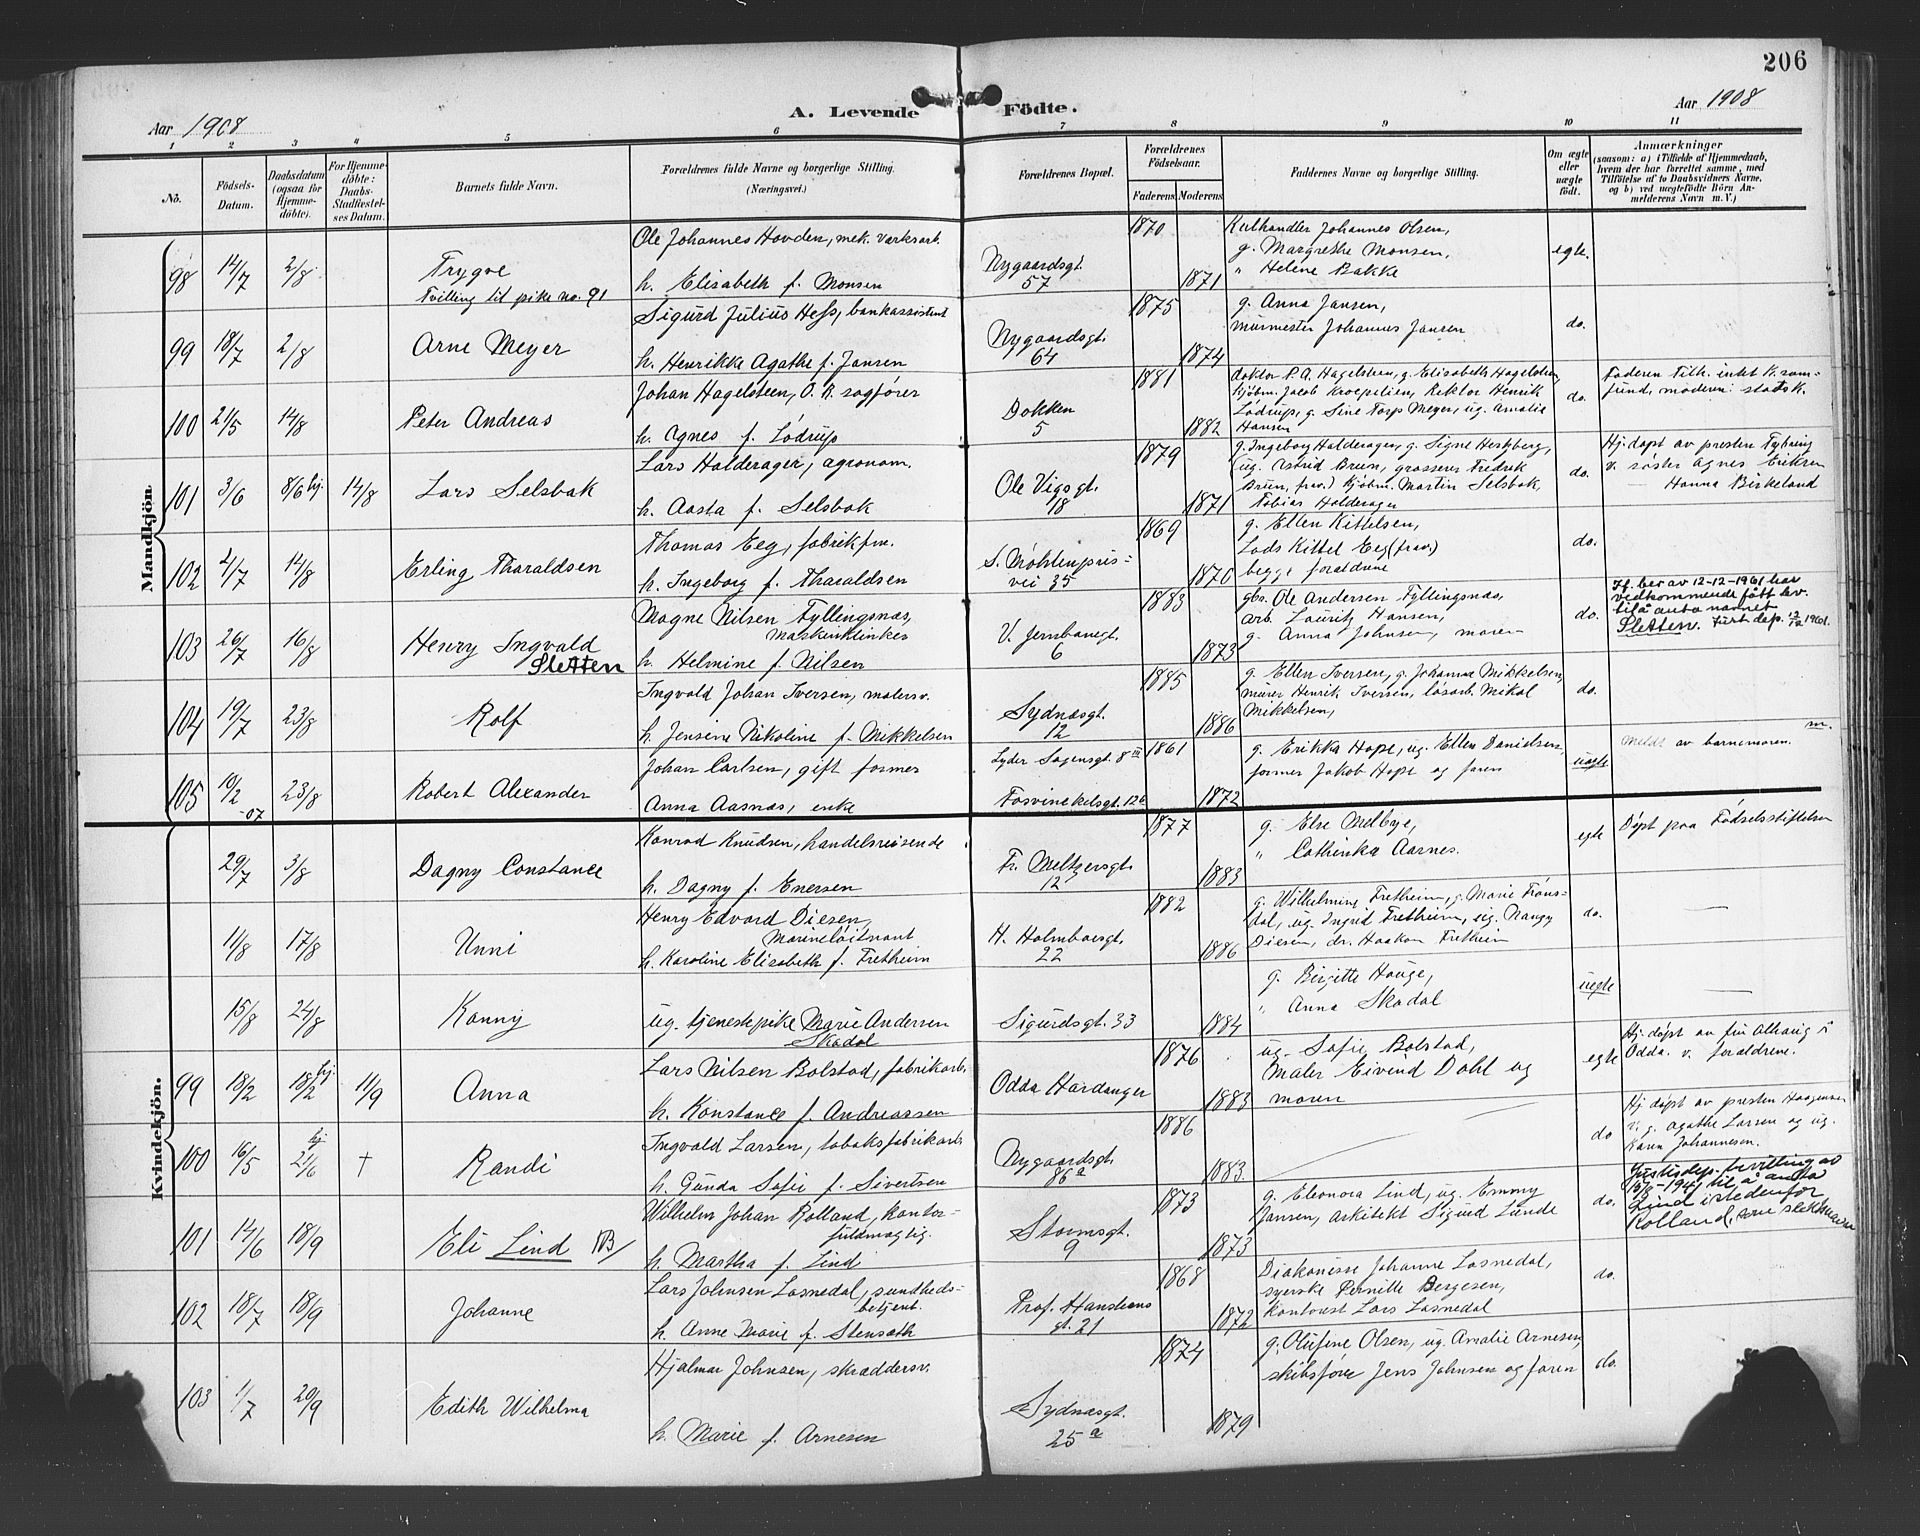 206
Aar 1908
A. Levende Födte.
Aar 1908
1 2 3 4 5 6 7 8 9 10 11
No.
Födsels-Datum.
Daabsdatum (ogsaa for Hjemmedöbte).
For Hjemmedöbte: Daabs-Stadfæstelses Datum.
Barnets fulde Navn.
Forældrenes fulde Navne og borgerlige Stilling.
(Næringsvei.)
Forældrenes Bopæl.
Forældrenes Födselsaar.
Faderens Moderens
Faddernes Navne og borgerlige Stilling.
Om ægte eller uægte födt.
Anmærkninger
(saasom: a) i Tilfælde af Hjemmedaab, hvem der har forrettet samme, med Tilföielse af to Daabsvidners Navne, og b) ved uægtefödte Börn Anmelderens Navn m. V.)
Mandkjön
98 14/7 2/8 Trygve
Tvilling til pike no. 91
Ole Johannes Hovden, mek. værksarb.
h. Elisabeth f. Monsen
Nygaardsgt. 57
1870 1871
Kulhandler Johannes Olsen,
g. Margrethe Monsen,
" Helene Bakke
egte.
99 18/7 2/8 Arne Meyer
Sigurd Julius Hess, bankassistent
h. Henrikke Agathe f. Jansen
Nygaardsgt. 64
1875 1874
g. Anna Jansen,
murmester Johannes Jansen
do.
100 21/5 14/8 Peter Andreas
Johan Hagelsteen, O. R. sagfører
h. Agnes f. Lødrup
Dokken 5
1881 1882
doktor P. A. Hagelsteen, g. Elisabeth Hagelsteen,
kjøbm. Jacob Kroepelien, Rektor Henrik
Lødrup, g. Sine Torp Meyer, ug. Amalie
Hansen
do.
Faderen tilh. intet k. samfund, moderen statsk.
101 3/6 8/6 hj. 14/8 Lars Selsbak
Lars Halderager, agronom.
h. Aasta f. Selsbak
Ole Vigs gt. 18
1879 1871
g. Ingeborg Halderager, g. Signe Hertzberg,
(ug. Astrid Bruun, grosserer Fredrik
Bruun, frav.) kjøbm. Martin Selsbak,
Tobias Halderager
do.
Hj. døpt av presten
v. søster Agnes Eriksen
Hanna Birkeland
102 2/7 14/8 Erling Tharaldsen
Thomas Eeg, fabrikfm.
h. Ingeborg f. Tharaldsen
S. Møhlenprisvei 35
1869 1870
g. Ellen Kittelsen,
Lods Kittel Eeg (frav.)
begge forældrene
do.
103 26/7 16/8 Henry Ingvald
Sletten
Magne Nilsen Fyllingsnæs,
maskinklinker
h. Helmine f. Nilsen
V. Jernbanegt. 6
1883 1873
gbr. Ole Andersen Fyllingsnæs,
arb. Lauritz Hansen,
g. Anna Johnsen, moren
do.
If. bev av 12-12-1961 har
vedkommende fått bev.
til å anta navnet
Sletten. Just. dep. 12/12 1961.
104 19/7 23/8 Rolf
Ingvald Johan Iversen, malersv.
h. Jensine Nikoline f. Mikkelsen
Sydnæsgt. 12
1885 1886
g. Ellen Iversen, g. Johanna Mikkelsen,
murer Henrik Iversen, løsarb. Mikal
Mikkelsen,
do.
105 10/2 -07 23/8 Robert Alexander
Johan Carlsen, gift former
Anna Aasnæs, enke
Lyder Sagensgt. 8 III
Fosvinckelsgt. 12b
1861 1872
g. Erikka Hope, ug. Ellen Danielsen,
former Jakob Hope og faren
uegte
Meldt av barnemoren. m.
Kvindekjön.
29/7 3/8 Dagny Constance
Konrad Knudsen, handelsreisende
h. Dagny f. Enersen
Fr. Meltzersgt. 12
1877 1883
g. Else Melbye,
" Cathinka Aarnes.
egte
Døpt paa Fødselsstiftelsen
11/8 17/8 Unni
Henry Edvard Diesen,
Marineløitnant
h. Karoline Elisabeth f. Fretheim
H. Holmboesgt. 22
1882 1886
g. Wilhelmine Fretheim, g. Marie Frønsdal, ug. Ingrid Fretheim, ug. Nangy
Diesen, dr. Haakon Fretheim
do.
15/8 24/8 Konny
ug. tjenestepike Marie Andersen
Skadal
Sigurdsgt. 33
1884
g. Birgitte Hauge,
" Anna Skadal
uegte
99 18/2 18/2 hj. 11/9 Anna
Lars Nilsen Bolstad, fabrikarb.
h. Konstance f. Andreassen
Odda Hardanger
1876 1883
ug. Sofie Bolstad,
Maler Eivind Dahl og
moren
egte
Hj. døpt av fru Alhaug i
Odda. v. forældrene.
100 16/5 hj 21/6 † Randi
Ingvald Larsen, tobaksfabrikarb.
h. Gunda Sofie f. Sivertsen
Nygaardsgt. 86a
1886 1883
do
Hj døpt av presten Haagensen
v. g. Agathe Larsen og ug.
Karen Johannesen.
101 14/6 18/9 Eli Lind
Wilhelm Johan Rolland, kontorfuldmægtig.
h. Martha f. Lind
Stormsgt. 9
1873 1873
g. Eleonora Lind, ug. Emmy
Jansen, arkitekt Sigurd Lunde
do.
Justisdep. bevilling av
til å anta
Lind istedenfor
Rolland, som slektsnavn
102 18/7 18/9 Johanne
Lars Johnsen Losnedal, sundhedsbetjent.
h. Anne Marie f. Stensæth
Prof. Hansteens gt. 21
1868 1872
Diakonisse Johanne Losnedal,
syerske Pernille Bergesen,
Kontorist Lars Losnedal
do.
103 1/7 20/9 Edith Wilhelma
Hjalmar Johnsen, skræddersv.
h. Marie f. Arnesen
Sydnæsgt. 25 a
1874 1879
g. Olufine Olsen, ug. Amalie Arnesen,
skibsfører Jens Johnsen og faren
do.